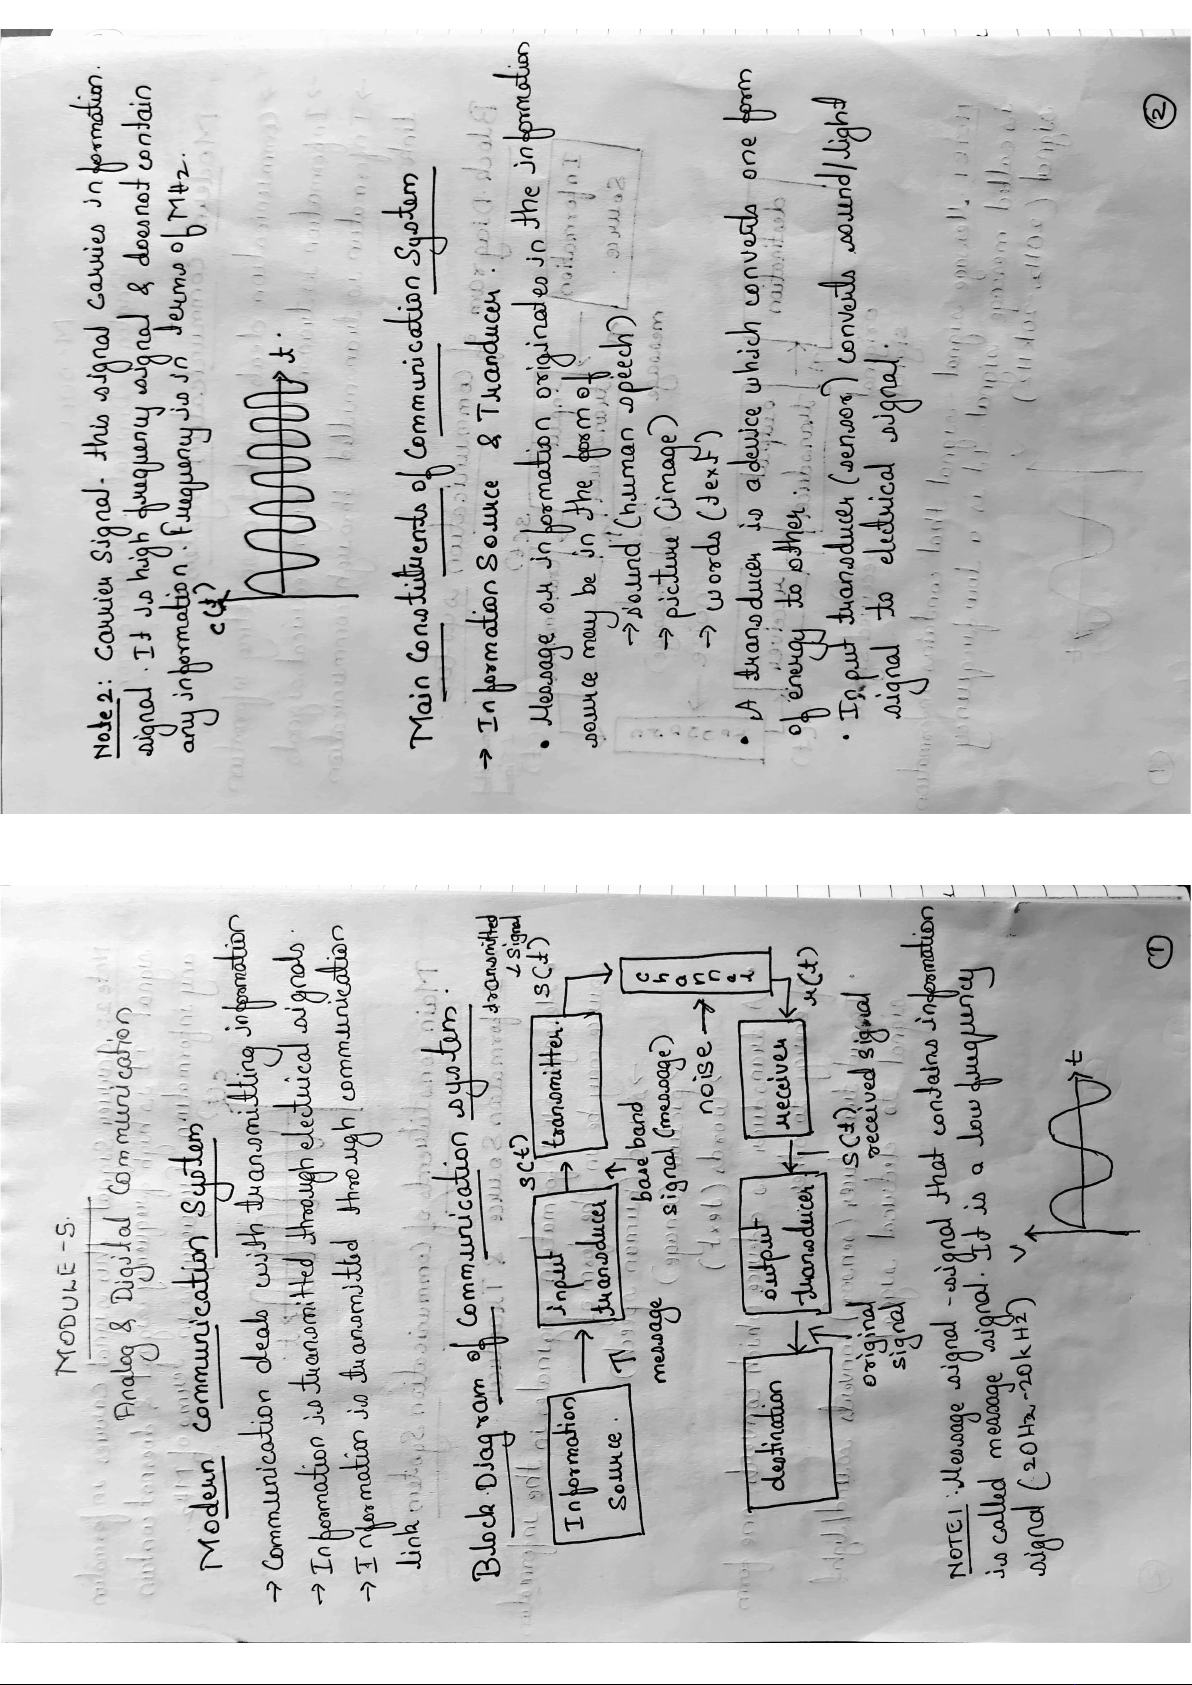 MODULE-5.
Analog & Digital Communication
Modern Communication System
→ Communication deals with transmitting information
→ Information is transmitted through electrical signals.
→ Information is transmitted through communication
link
Block Diagram of Communication system.
transmitted
signal
s(t)
s(t)
Information
Source.
input
transducer
transmitter.
channel
message
base band
signal (message)
noise →
r(t)
destination
output
transducer
receiver
original
signal
s(t)
received signal.
NOTE1: Message signal - signal that contains information
is called message signal. It is a low frequency
signal (20Hz-20kHz)
V
t
①
Note2: Carrier Signal- this signal carries information.
signal. It is high frequency signal & doesnot contain
any information. Frequency is in terms of MHz.
c(t)
t.
Main Constituents of Communication System
→ Information Source & Tranducer:
• Message or information originates in the information
source may be in the form of
→ sound (human speech)
→ picture (image)
→ words (text)
• A transducer is a device which converts one form
of energy to other.
• Input transducer (sensor) converts sound/light
signal to electrical signal.
②